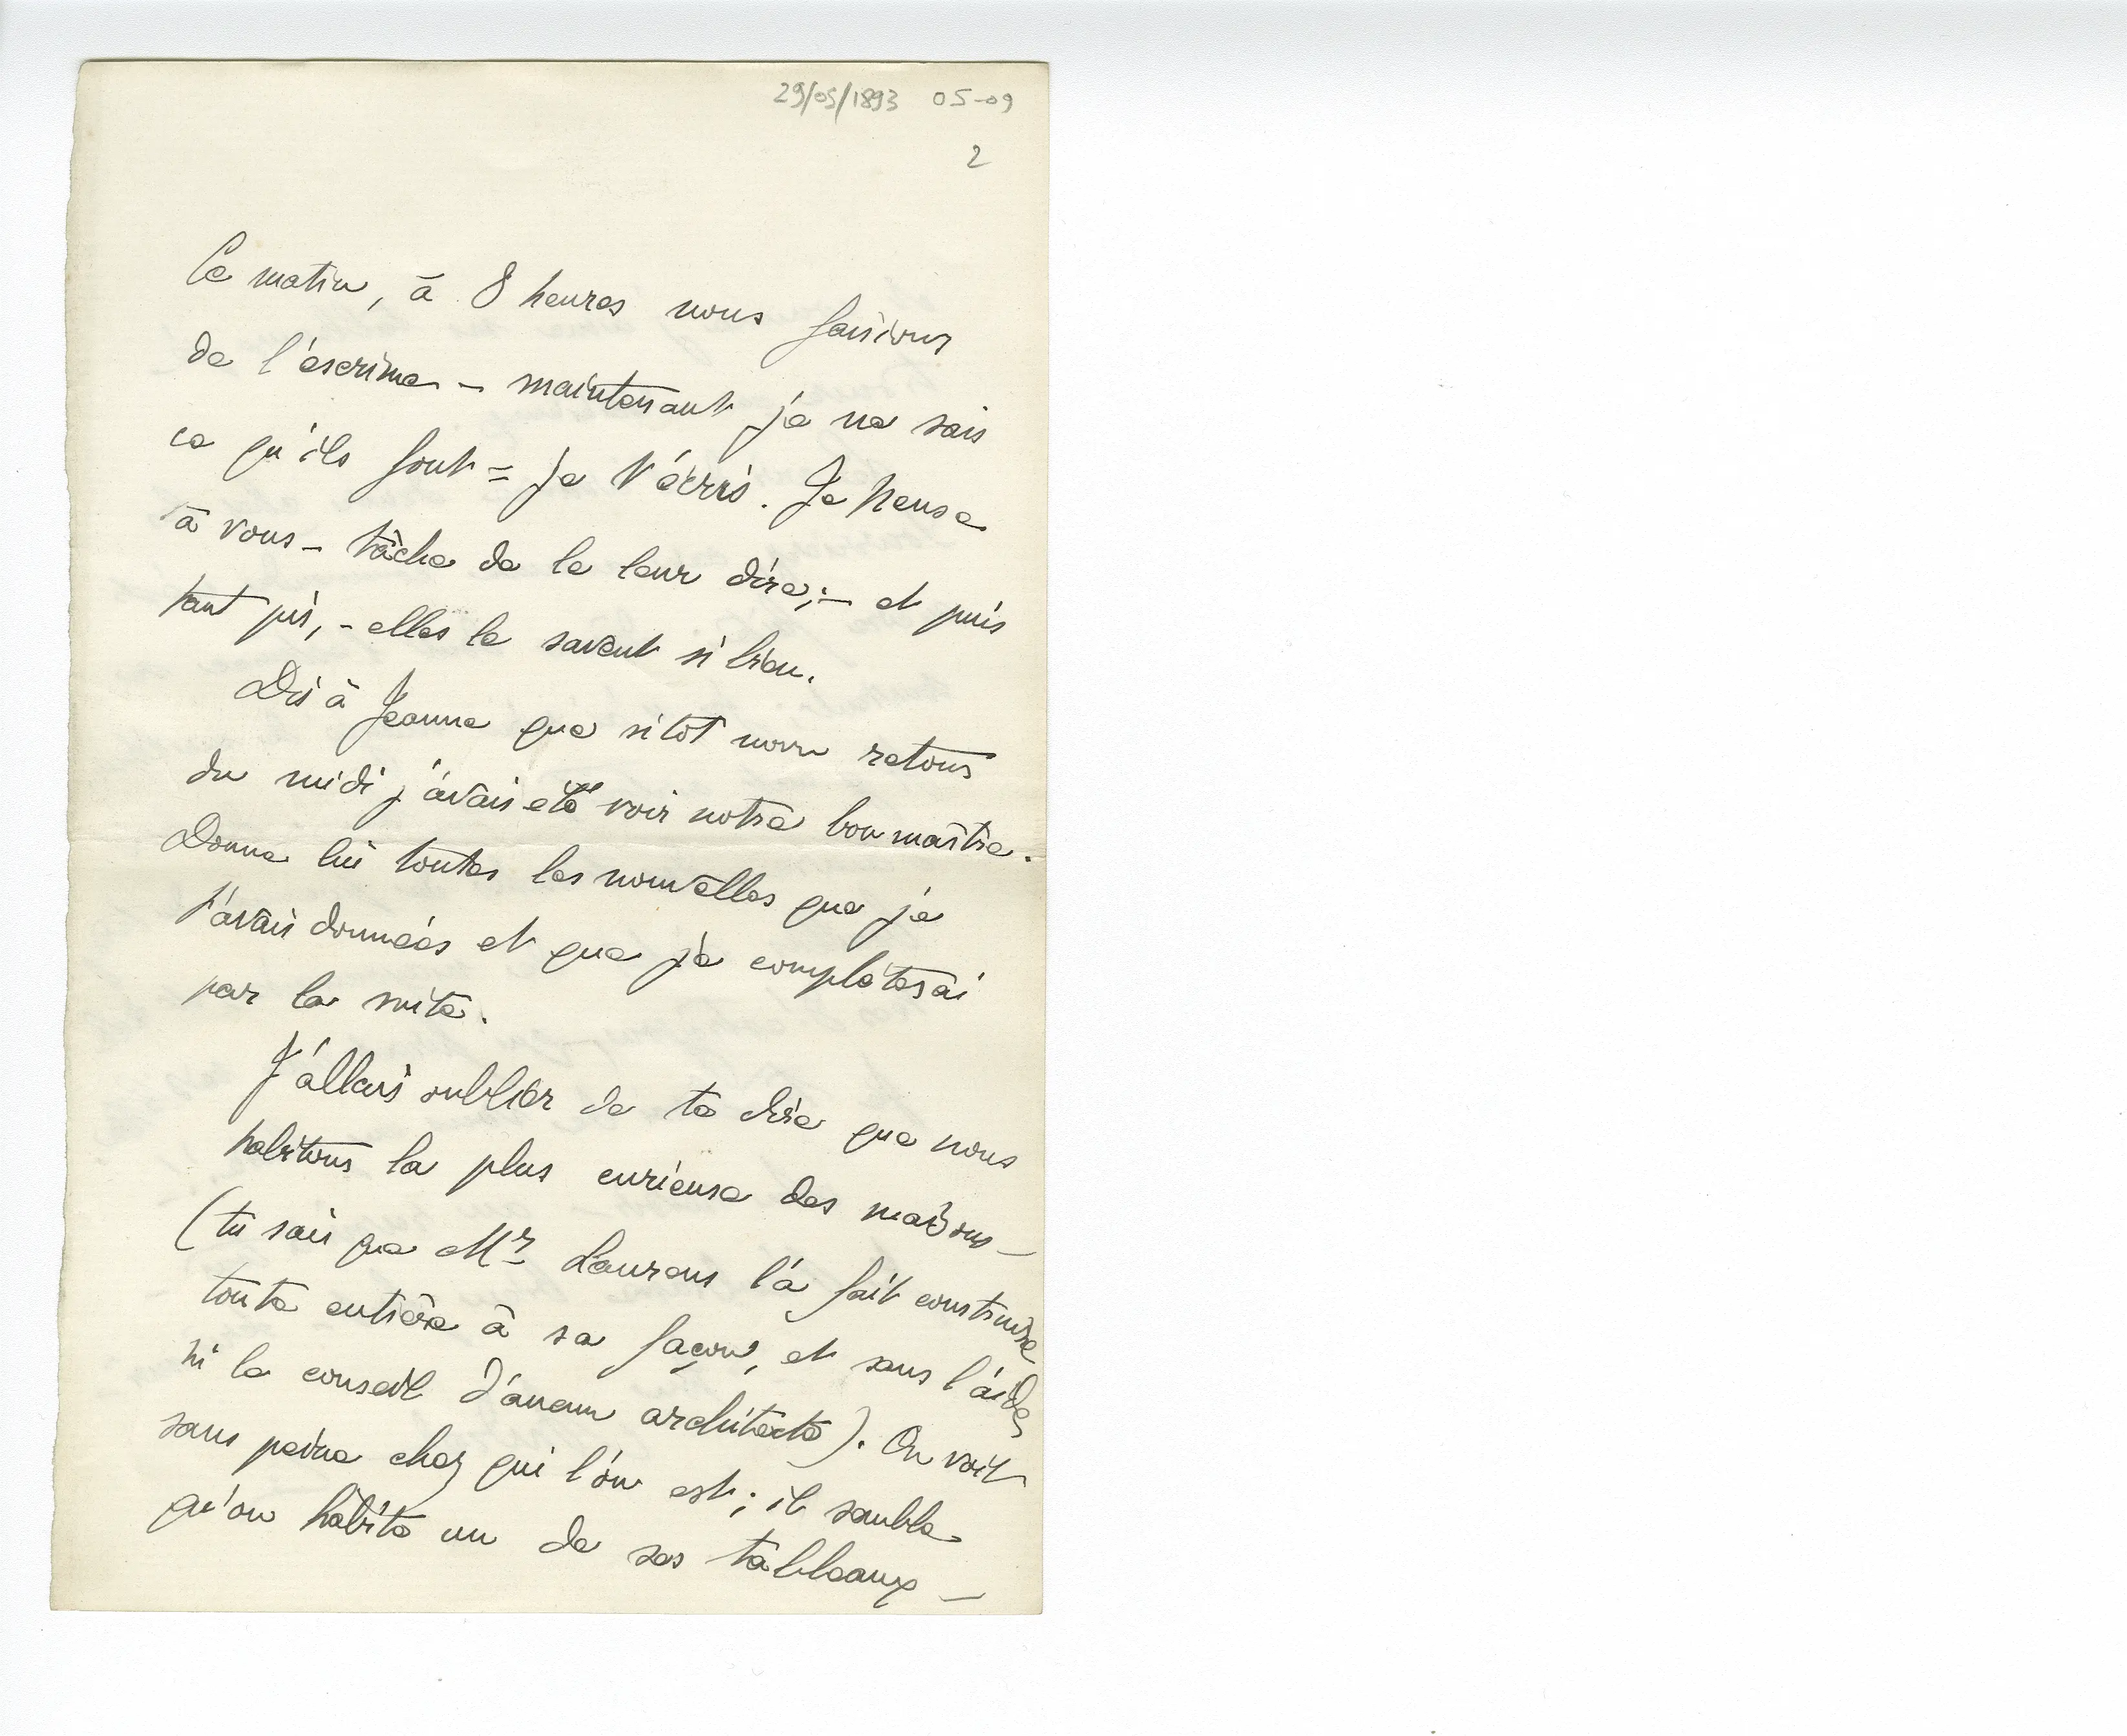 29/05/1893 05-09
2
Ce matin, à 8 heures nous faisions
de l'escrime – maintenant je ne sais
ce qu'ils font = Je t'écris. Je pense
à vous – tâche de le leur dire; – et puis
tant pis, – elles le savent si bien.
Dis à Jeanne que sitôt mon retour
du midi j'avais été voir notre bon maître.
Donne lui toutes les nouvelles que je
t'avais données et que je complèterai
par la suite.
J'allais oublier de te dire que nous
habitons la plus curieuse des maisons –
(tu sais que Mr Laurens l'a fait construire
toute entière à sa façon, et sans l'aide,
ni le conseil d'aucun architecte). On voit
sans peine chez qui l'on est; il semble
qu'on habite un de ses tableaux –